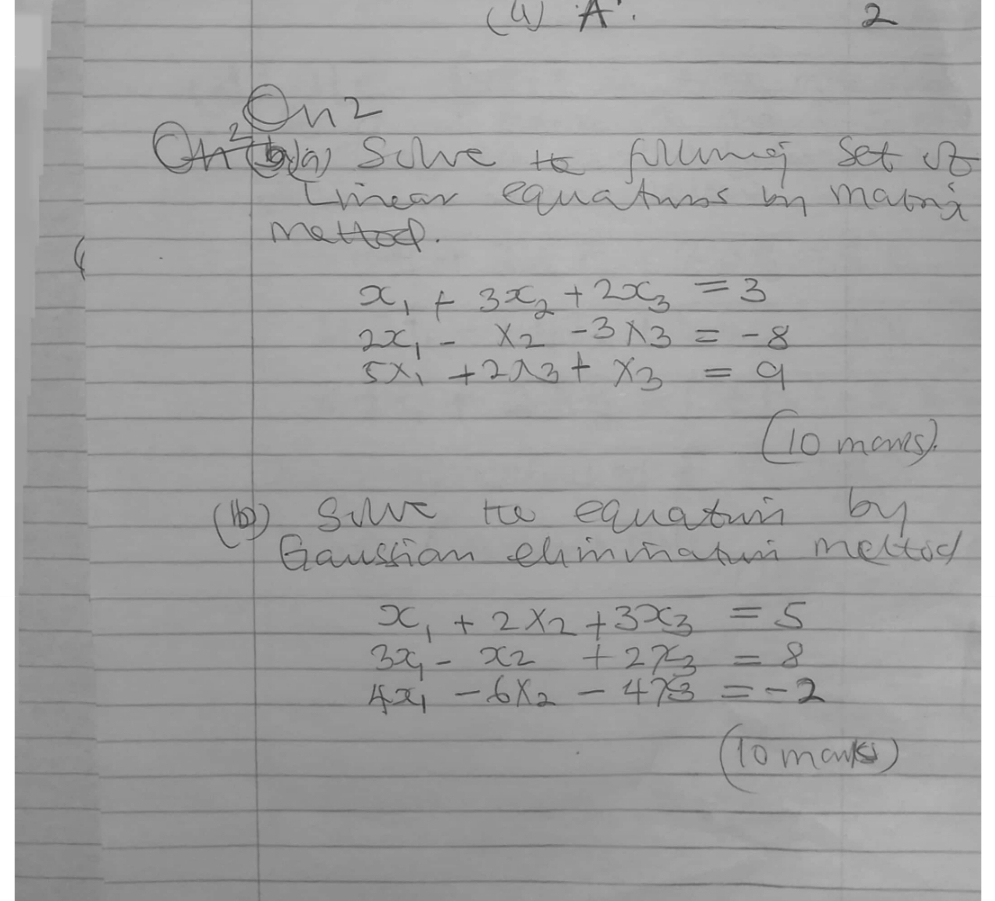 (ii) A². 2
Qn 2
Qn 2 (a) Solve the following set of
Linear equations by matrix
method.
x₁ + 3x₂ + 2x₃ = 3
2x₁ - x₂ - 3x₃ = -8
5x₁ + 2x₃ + x₃ = 9
(10 marks).
(b) Solve the equation by
Gaussian elimination method
x₁ + 2x₂ + 3x₃ = 5
3x₁ - x2 + 2x₃ = 8
4x₁ - 6x₂ - 4x₃ = -2
(10 marks)